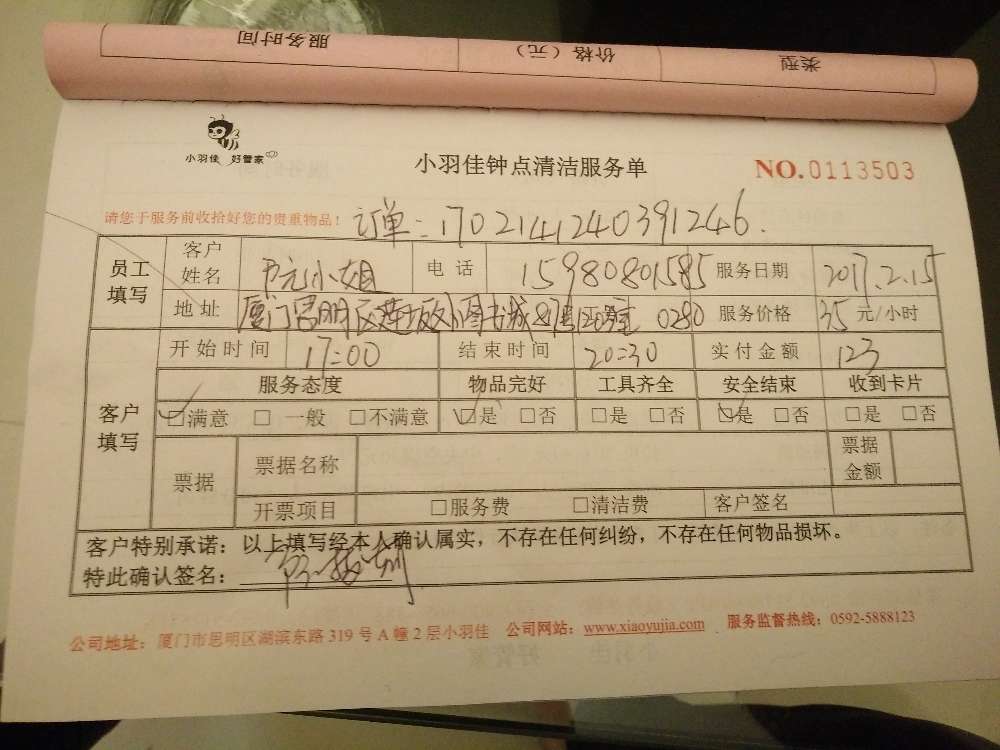 服务时间 价格（元） 类型
小羽佳 好管家
小羽佳钟点清洁服务单
NO.0113503
请您于服务前收拾好您的贵重物品！
订单：1702141240391246.
员工填写 客户姓名 小姐 电话 15980801585 服务日期 2017.2.15
地址 厦门思明区莲坂外图书城 0280 服务价格 35 元/小时
客户填写 开始时间 17:00 结束时间 20:30 实付金额 123
服务态度 物品完好 工具齐全 安全结束 收到卡片
☑满意 □ 一般 □不满意 ☑是 □否 □是 □否 ☑是 □否 □是 □否
票据 票据名称 票据金额
开票项目 □服务费 □清洁费 客户签名
客户特别承诺：以上填写经本人确认属实，不存在任何纠纷，不存在任何物品损坏。
特此确认签名：
公司地址：厦门市思明区湖滨东路 319 号 A 幢 2 层小羽佳 公司网站：www.xiaoyujia.com 服务监督热线：0592-5888123